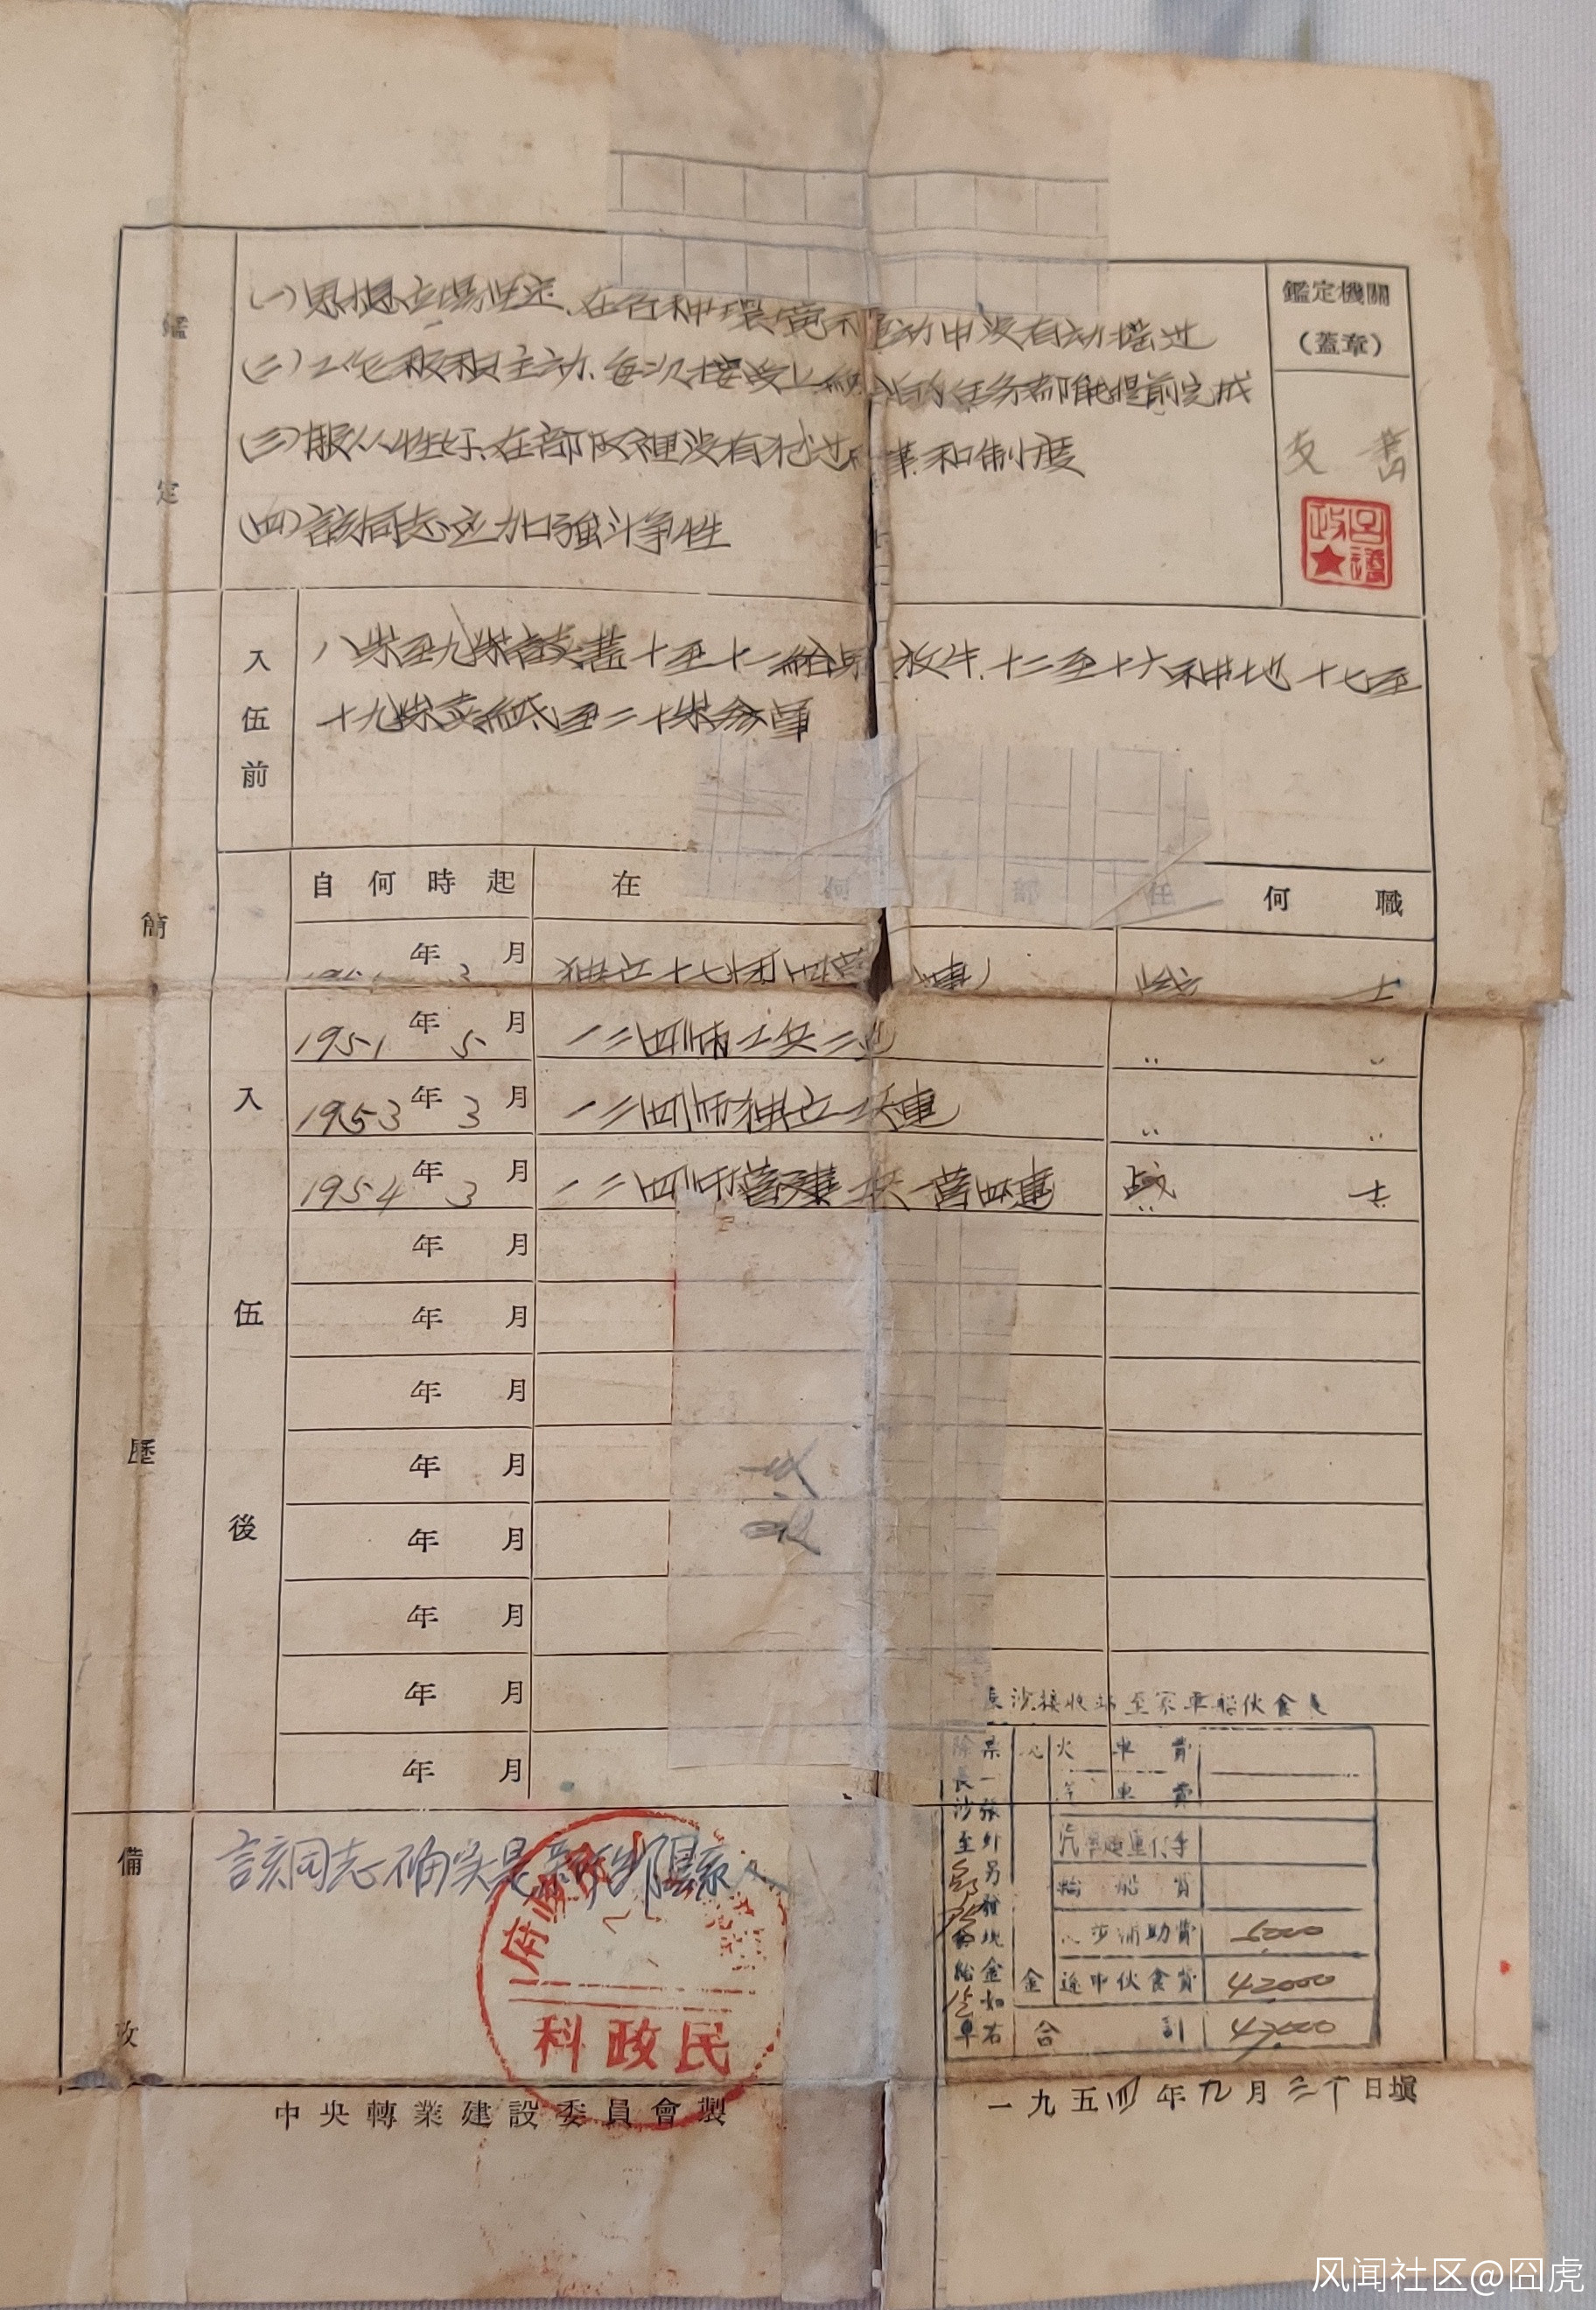 鑑定
(一)思想立場坚定、在各种環境和运动中没有动摇过
(二)工作积极主动、每次接受上级的任务都能提前完成
(三)服从性好、在部队裡没有犯过 和制度
(四)該同志应加强斗争性
鑑定機關
(蓋章)
簡歷
入伍前
八岁至九岁 十至十一給 放牛.十二至十六种地 十七至
十九岁卖紙至二十岁参軍
入伍後
自何時起 在何部任何職
年 3月 独立十七团四营 連 战士
1951年5月 一二四师工兵二 〃 〃
1953年3月 一二四师独立 連 〃 〃
1954年3月 一二四师营建 一营四連 战士
年 月
年 月
年 月
年 月
年 月
年 月
年 月
年 月
長沙接收站至家車船伙食
除長沙至 票一張外另發現金如右
火車費
車費
汽
輪船費
步補助費 5000
金 途中伙食費 42000
合計 47000
備攷
該同志确实是 邵陽縣人
府
民政科
中央轉業建設委員會製
一九五四年九月三十日填
风闻社区@囧虎